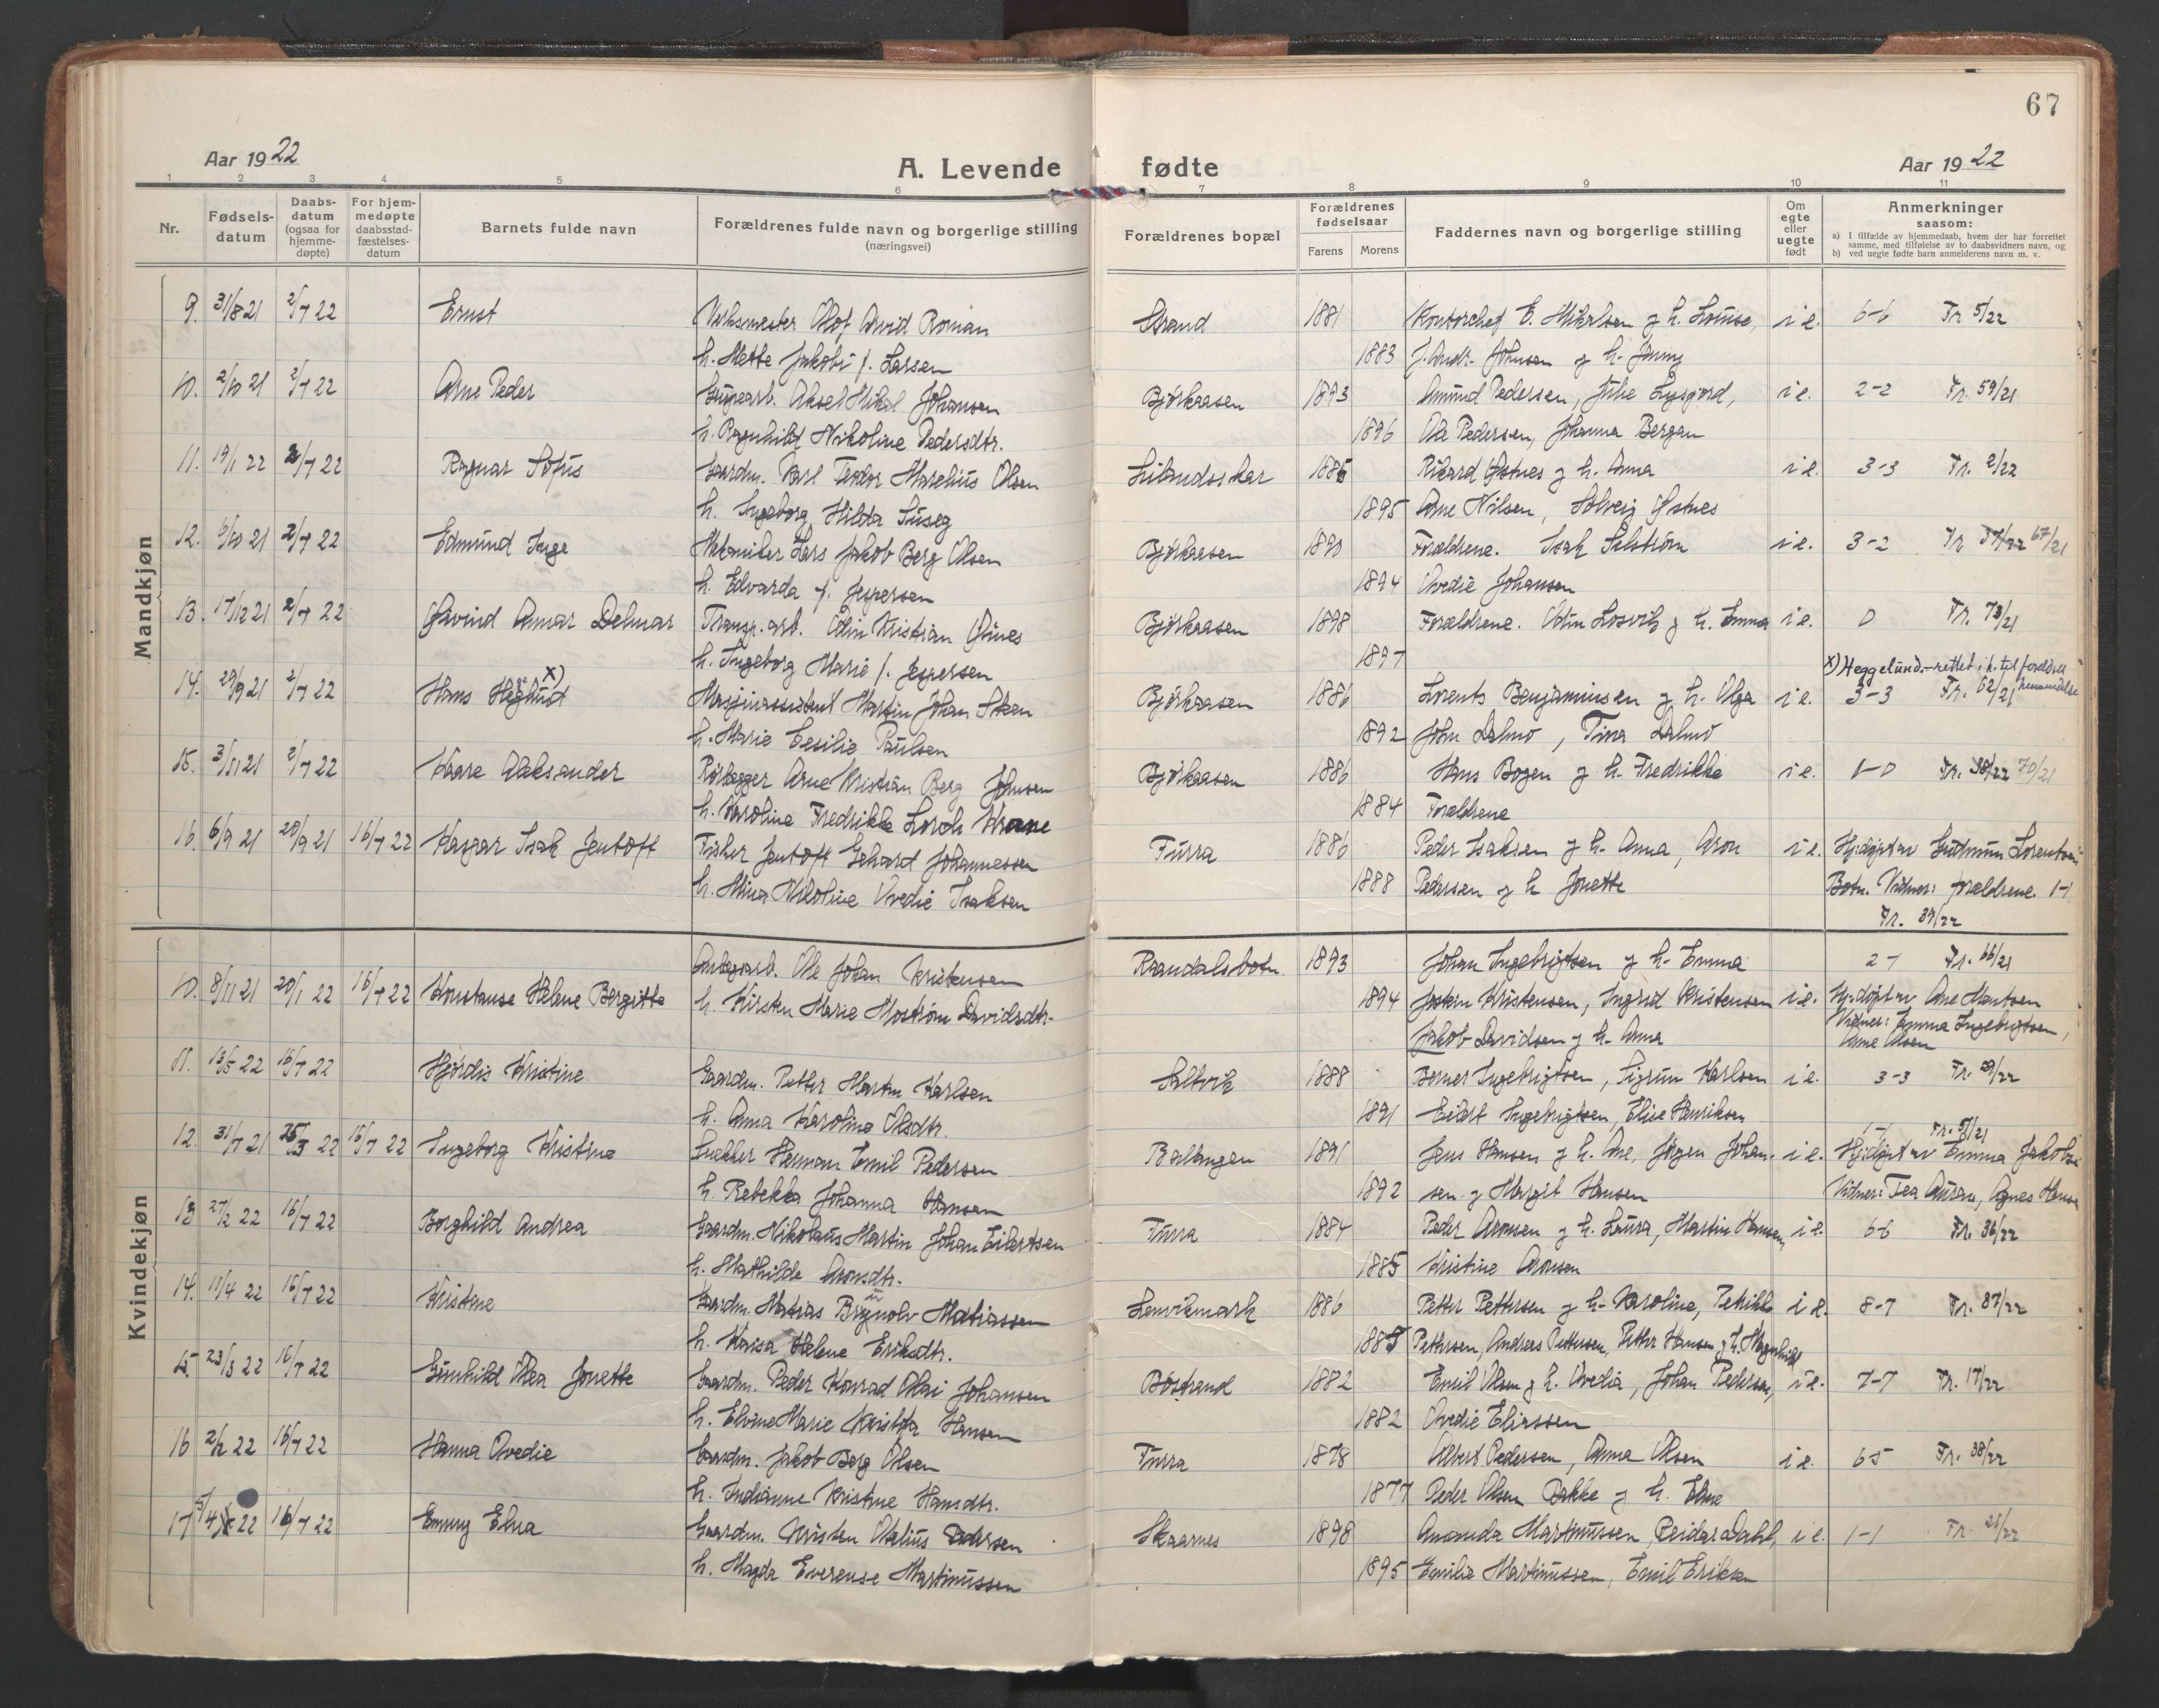 67
Aar 1922
A. Levende fødte
Aar 1922
1 2 3 4 5 6 7 8 9 10 11
Nr.
Fødsels-
datum
Daabs-
datum
(ogsaa for
hjemme-
døpte)
For hjem-
medøpte
daabsstad-
fæstelses-
datum
Barnets fulde navn
Forældrenes fulde navn og borgerlige stilling
(næringsvei)
Forældrenes bopæl
Forældrenes
fødselsaar
Farens Morens
Faddernes navn og borgerlige stilling
Om
egte
eller
uegte
født
Anmerkninger
saasom:
a) I tilfælde av hjemmedaab, hvem der har forrettet
samme, med tilføielse av to daabsvidners navn, og
b) ved uegte fødte barn anmelderens navn m. v.
Mandkjøn
9. 31/8 21 2/7 22 Ernst Olof Arvid Roman Strand 1881 Kontorchef E. Mikelsen g h. Louise, i e. 6-6 Fr. 5/22
h. Mette Jakobi f. Larsen 1883 J. Andr. Johnsen g h. Jenny
10. 2/10 21 2/7 22 Arne Peder Aksel Mikal Johansen Bjørkaasen 1893 Amund Pedersen, Julie Lysgjord, i e. 2-2 Fr. 59/21
h. Ragnhild Nikoline Pedersdtr. 1896 Ole Pedersen, Johanna Bergan
11. 19/1 22 2/7 22 Ragnar Sofus Gaardm. Karl Teodor Marelius Olsen Lilandsskar 1885 Rikard Østnes g h. Anna i e. 3-3 Fr. 2/22
h. Ingeborg Hilda Suseg 1895 Arne Nilsen, Solveig Østnes
12. 6/10 21 2/7 22 Edmund Inge Mekaniker Lars Jakob Berg Olsen Bjørkaasen 1890 Forældrene. Isak Selstrøm i e. 3-2 Fr. 37/22 67/21
h. Edvarda f. Jespersen 1894 Ovedie Johansen
13. 17/12 21 2/7 22 Øivind Annar Delmar Transp. arb. Odin Kristian Osines Bjørkaasen 1898 Forældrene. Odin Losvik g h. Emma i e. 0 Fr. 73/21
h. Ingeborg Marie f. Jespersen 1897
x) Heggelund.- rettet i h. til foreldres henvendelse
14. 29/9 21 2/7 22 Hans Heglund x) Maskinassistent Martin Johan Steen Bjørkaasen 1886 Lorents Benjaminsen g h. Olga i e. 3-3 Fr. 62/21
h. Marie Cesilie Paulsen 1892 John Dalmo, Tina Dalmo
15. 3/11 21 2/7 22 Kaare Aleksander Rørlegger Arne Kristian Berg Johnsen Bjørkaasen 1886 Hans Bogen g h. Fredrikke i e. 1-0 Fr. 38/22 70/21
h. Karoline Fredrikke Lorch Krane 1884 Forældrene
16. 6/9 21 20/9 21 16/7 22 Kaspar Isak Jentoft Fisker Jentoft Gehard Johannessen Furra 1886 Peder Isaksen g h. Anna, Aron i e. Hj.døpt av Gudmun Lorentsen
h. Mina Nikoline Ovedie Isaksen 1888 Pedersen g h Jonette Botn. Vidner: forældrene. 1-1
Fr. 39/22
Kvindekjøn
10. 8/11 21 20/1 22 16/7 22 Konstanse Helene Bergitte Anlægsarb. Ole Johan Kristensen Raandalsbotn 1893 Johan Ingebrigtsen g h. Emma 2-1 Fr. 66/21
h. Kirsten Marie Mostrøm Davidsdtr. 1894 Jostein Kristensen, Ingrid Kristensen i e. Hj.døpt av Ane Mentsen
Jakob Davidsen g h. Anna Vidner: Emma Ingebrigtsen,
Ane Olsen
11. 13/5 22 16/7 22 Hjørdis Kristine Gaardm. Petter Martin Karlsen Saltvik 1888 Berner Ingebrigtsen, Sigrun Karlsen i e. 3-3 Fr. 29/22
h. Anna Karoline Olsdtr. 1891 Eilert Ingebrigtsen, Elise Henriksen
1-1 Fr. 51/21
12. 31/7 21 25/3 22 16/7 22 Ingeborg Kristine Snekker Herman Emil Pedersen Ballangen 1891 Jens Hansen g h. Ane, Jørgen Johan- i e. Hj.døpt av Emma Jakobsen
h. Rebekka Johanna Hansen 1892 sen g Margit Hansen Vidner: Tea Aurau, Agnes Hansen
13 27/2 22 16/7 22 Borghild Andrea Gaardm. Nikolaus Martin Johan Eilertsen Furra 1884 Peder Aronsen g h. Laura, Martin Hansen, i e. 6-6 Fr. 36/22
h. Mathilde Aronsdtr. 1885 Kristine Aronsen
14. 11/4 22 16/7 22 Kristine Gaardm. Matias Brynolv Matiassen Lenvikmark 1886 Petter Pettersen g h. Karoline, Petrikke i e. 8-7 Fr. 37/22
h. Kaisa Helene Eriksdtr. 1885 Pettersen, Anders Pettersen, Petter Hansen g h. Magnhild
15. 23/3 22 16/7 22 Gunhild Olea Jonette Gaardm. Peder Konrad Olai Johansen Bøstrand 1882 Emil Olsen g h. Ovedia, Johan Pedersen, i e. 7-7 Fr. 17/22
h. Elvine Marie Kristna Hansen 1882 Ovedie Eliassen
16 2/2 22 16/7 22 Hanna Ovedie Gaardm. Jakob Berg Olsen Furra 1878 Albert Pedersen, Anna Olsen i e. 6-5 Fr. 38/22
h. Indianne Kristine Hansdtr. 1877 Peder Olsen Bakke g h. Eline
17 5/4 22 16/7 22 Emmy Elna Gaardm. Kristen Otelius Pedersen Skaarnes 1898 Amanda Martinussen, Reidar Dahl, i e. 1-1 Fr. 21/22
h. Magda Everense Martinussen 1895 Emilie Martinussen, Emil Eriksen